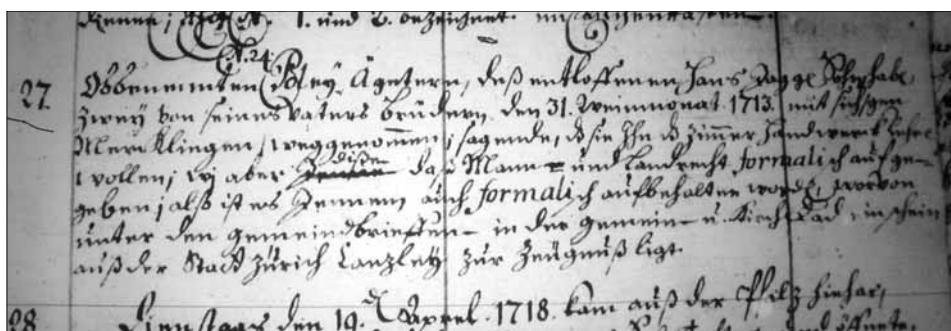 1. und 2. verzeichnet. im
N. 24.
27. Obbenemmten Vogtey, deß entloffenen Hans Jagge
zwey von seines Vaters brüdern, den 31. Weinmonat. 1713. mit sich gen
Merklingen weggenommen; sagende, dß sie Ihn dß Zimmer Handwerk
wollen; aber disen daß Mann- und Landrecht formalich aufge-
geben; alß ist es Jennem, auch formalich aufbehalten worden, worvon
unter den gemeindbrieffen in der gemein- u. Kirchlad ein schein
auß der Stadt Zürich Canzley zur Zeügnuß ligt.
28. Dienstags den 19. Aprel. 1718. kam auß der Pfalz hiehar,